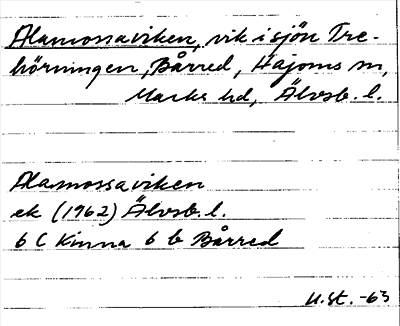 Alamossaviken, vik i sjön Tre-
hörningen, Bårred, Hajoms sn,
Marks hd, Älvsb. l.
Alamossaviken
ek (1962) Älvsb. l.
6 C Kinna 6 b Bårred
U.St. -63